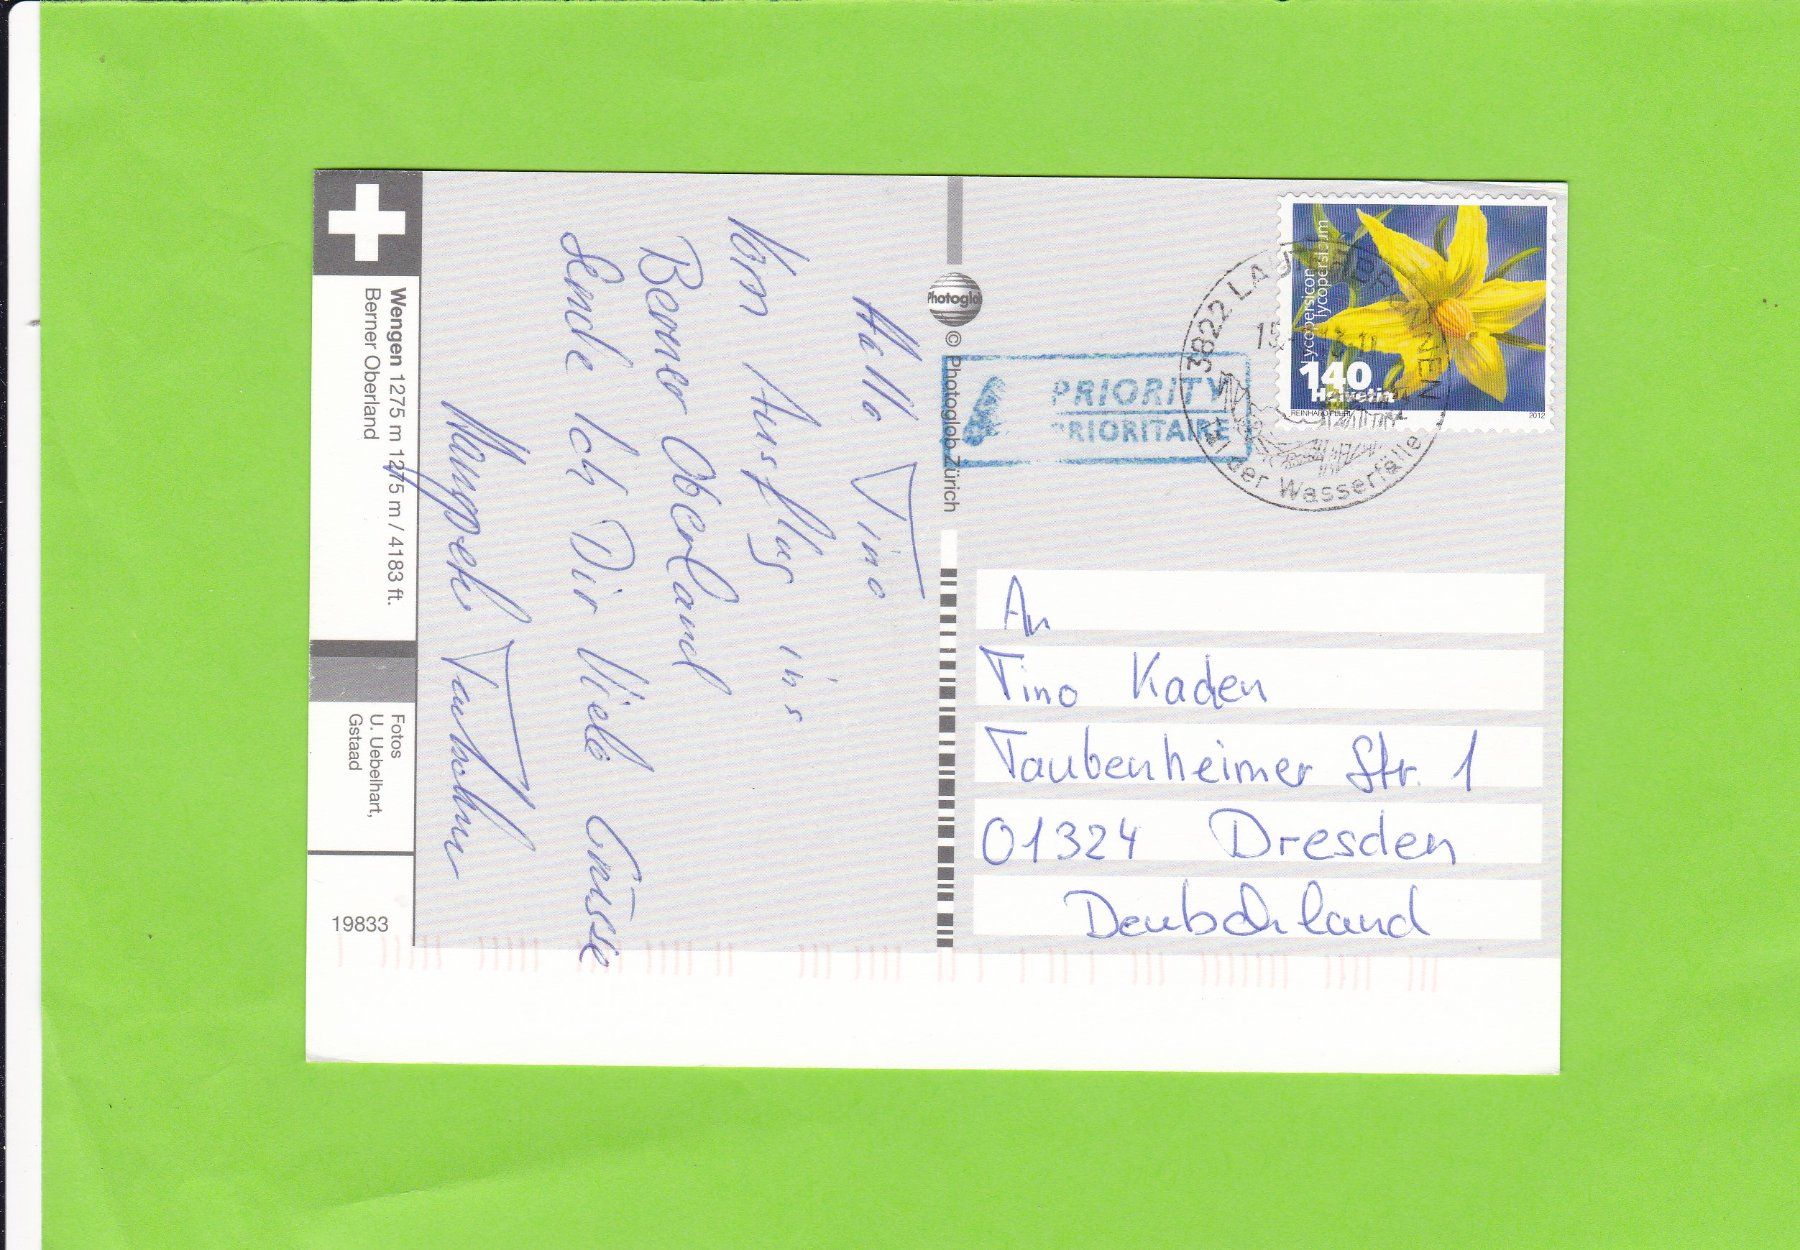 Wengen 1275 m 1275 m / 4183 ft.
Berner Oberland
Fotos
U. Uebelhart,
Gstaad
19833
Hallo Tino
Vom Ausflug ins
Berner Oberland
Sende Ich Dir Viele Grüsse
Photoglob
© Photoglob Zürich
PRIORITY
PRIORITAIRE
3822 LAUTERBRUNNEN
Tal der Wasserfälle
Lycopersicon
lycopersicum
140
Helvetia
2012
An
Tino Kaden
Taubenheimer Str. 1
01324 Dresden
Deutschland